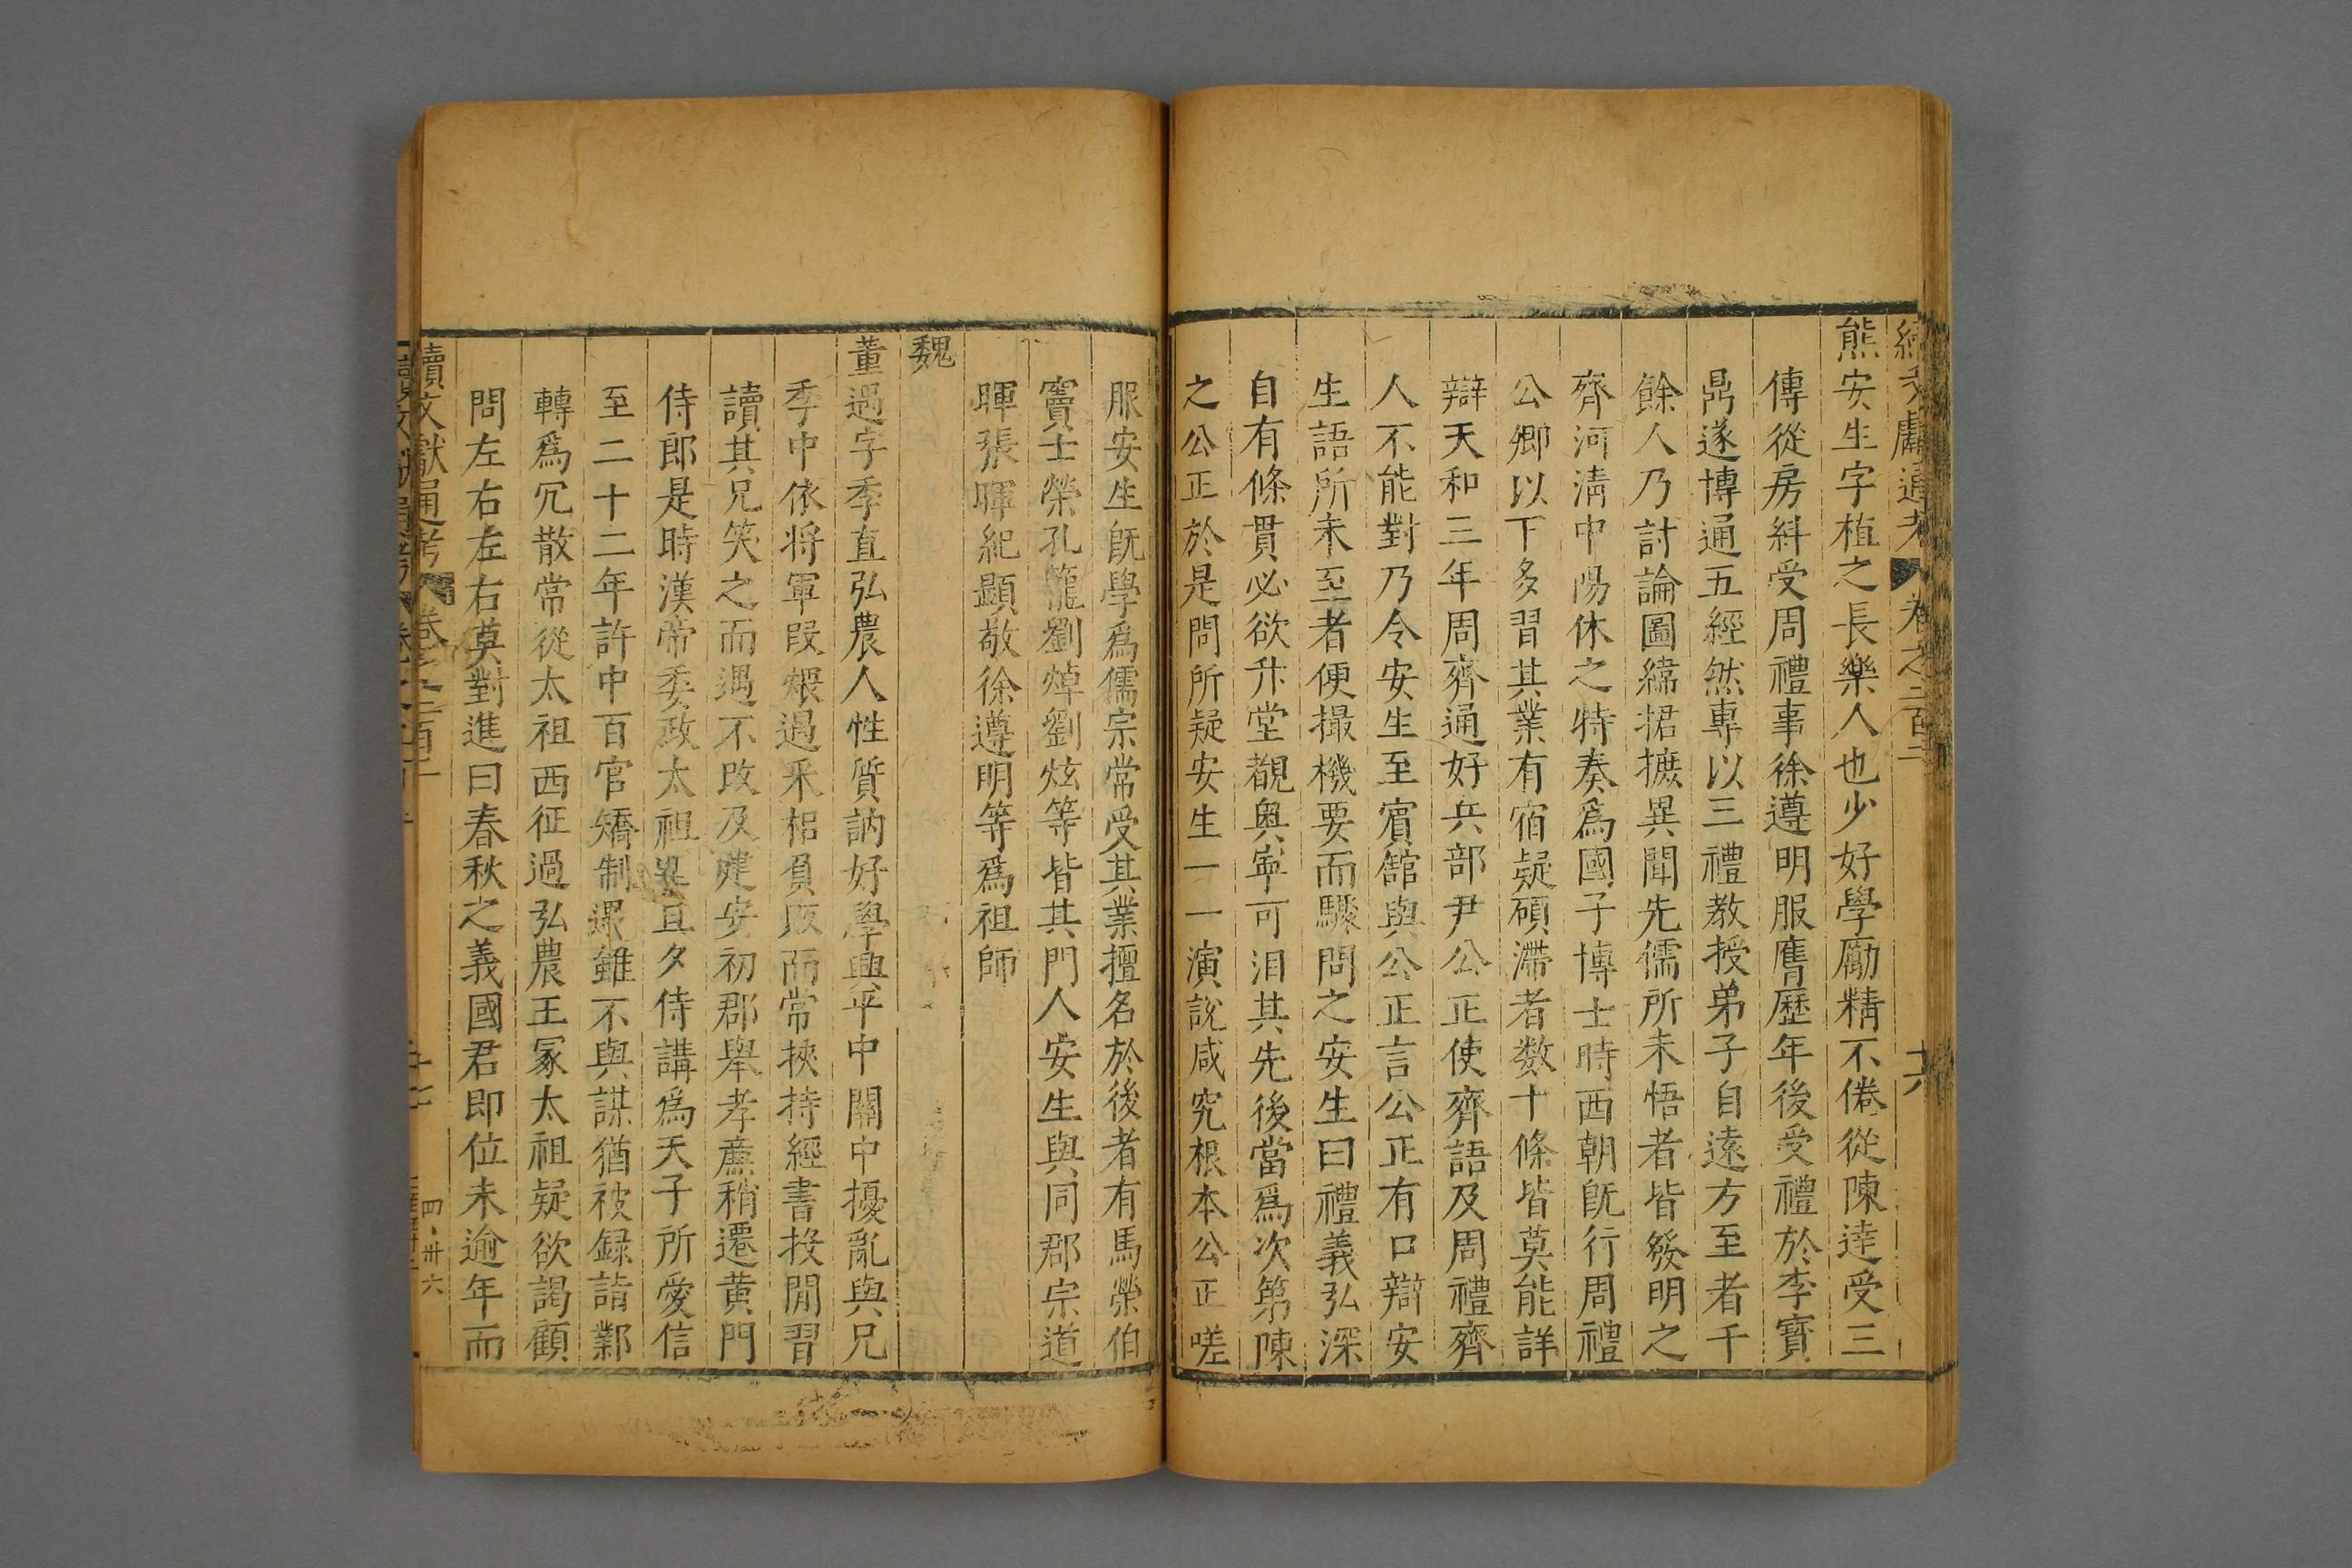 續文獻通考 卷之二百二 六
熊安生字植之長樂人也少好學勵精不倦從陳達受三
傳從房糾受周禮事徐遵明服膺歷年後受禮於李寶
鼎遂博通五經然專以三禮教授弟子自遠方至者千
餘人乃討論圖緯捃摭異聞先儒所未悟者皆發明之
齊河清中陽休之特奏爲國子博士時西朝既行周禮
公卿以下多習其業有宿疑碩滯者数十條皆莫能詳
辯天和三年周齊通好兵部尹公正使齊語及周禮齊
人不能對乃令安生至賓館與公正言公正有口辯安
生語所未至者便撮機要而驟問之安生曰禮義弘深
自有條貫必欲升堂覩奥寧可汩其先後當爲次第陳
之公正於是問所疑安生一一演說咸究根本公正嗟
服安生既學爲儒宗常受其業擅名於後者有馬榮伯
竇士榮孔籠劉焯劉炫等皆其門人安生與同郡宗道
暉張暉紀顯敬徐遵明等爲祖師
魏
董遇字季直弘農人性質訥好學興平中關中擾亂與兄
季中依將軍段煨遇采梠負販而常挾持經書投閒習
讀其兄笑之而遇不改及建安初郡舉孝廉稍遷黄門
侍郎是時漢帝委政太祖遇旦夕侍講爲天子所愛信
至二十二年許中百官矯制遇雖不與謀猶被録詣鄴
轉爲冗散常從太祖西征過弘農王冢太祖疑欲謁顧
問左右左右莫對進曰春秋之義國君即位未逾年而
續文獻通考 卷之二百二
四卅六